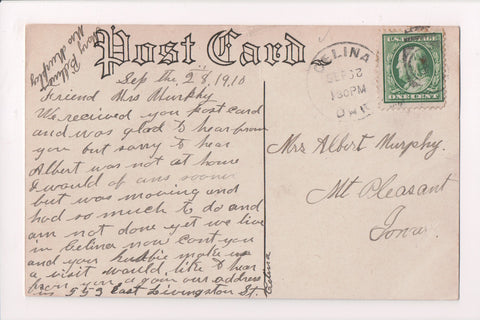 Post Card
Sep the 28, 1910
Friend Mrs Murphy
We received you Post card
and was glad to hear from
you but sorry to hear
Albert was not at home
I would of ans sooner
but was moving and
had so much to do and
am not done yet we live
in Celina now cant you
and your hubbie make us
a visit would like to hear
from you again our address
is 553 East Livingston St.
Celina
Mary
Mrs Murphy
CELINA
SEP 28
130PM
OHIO
ONE CENT
Mrs Albert Murphy.
Mt Pleasant
Iowa